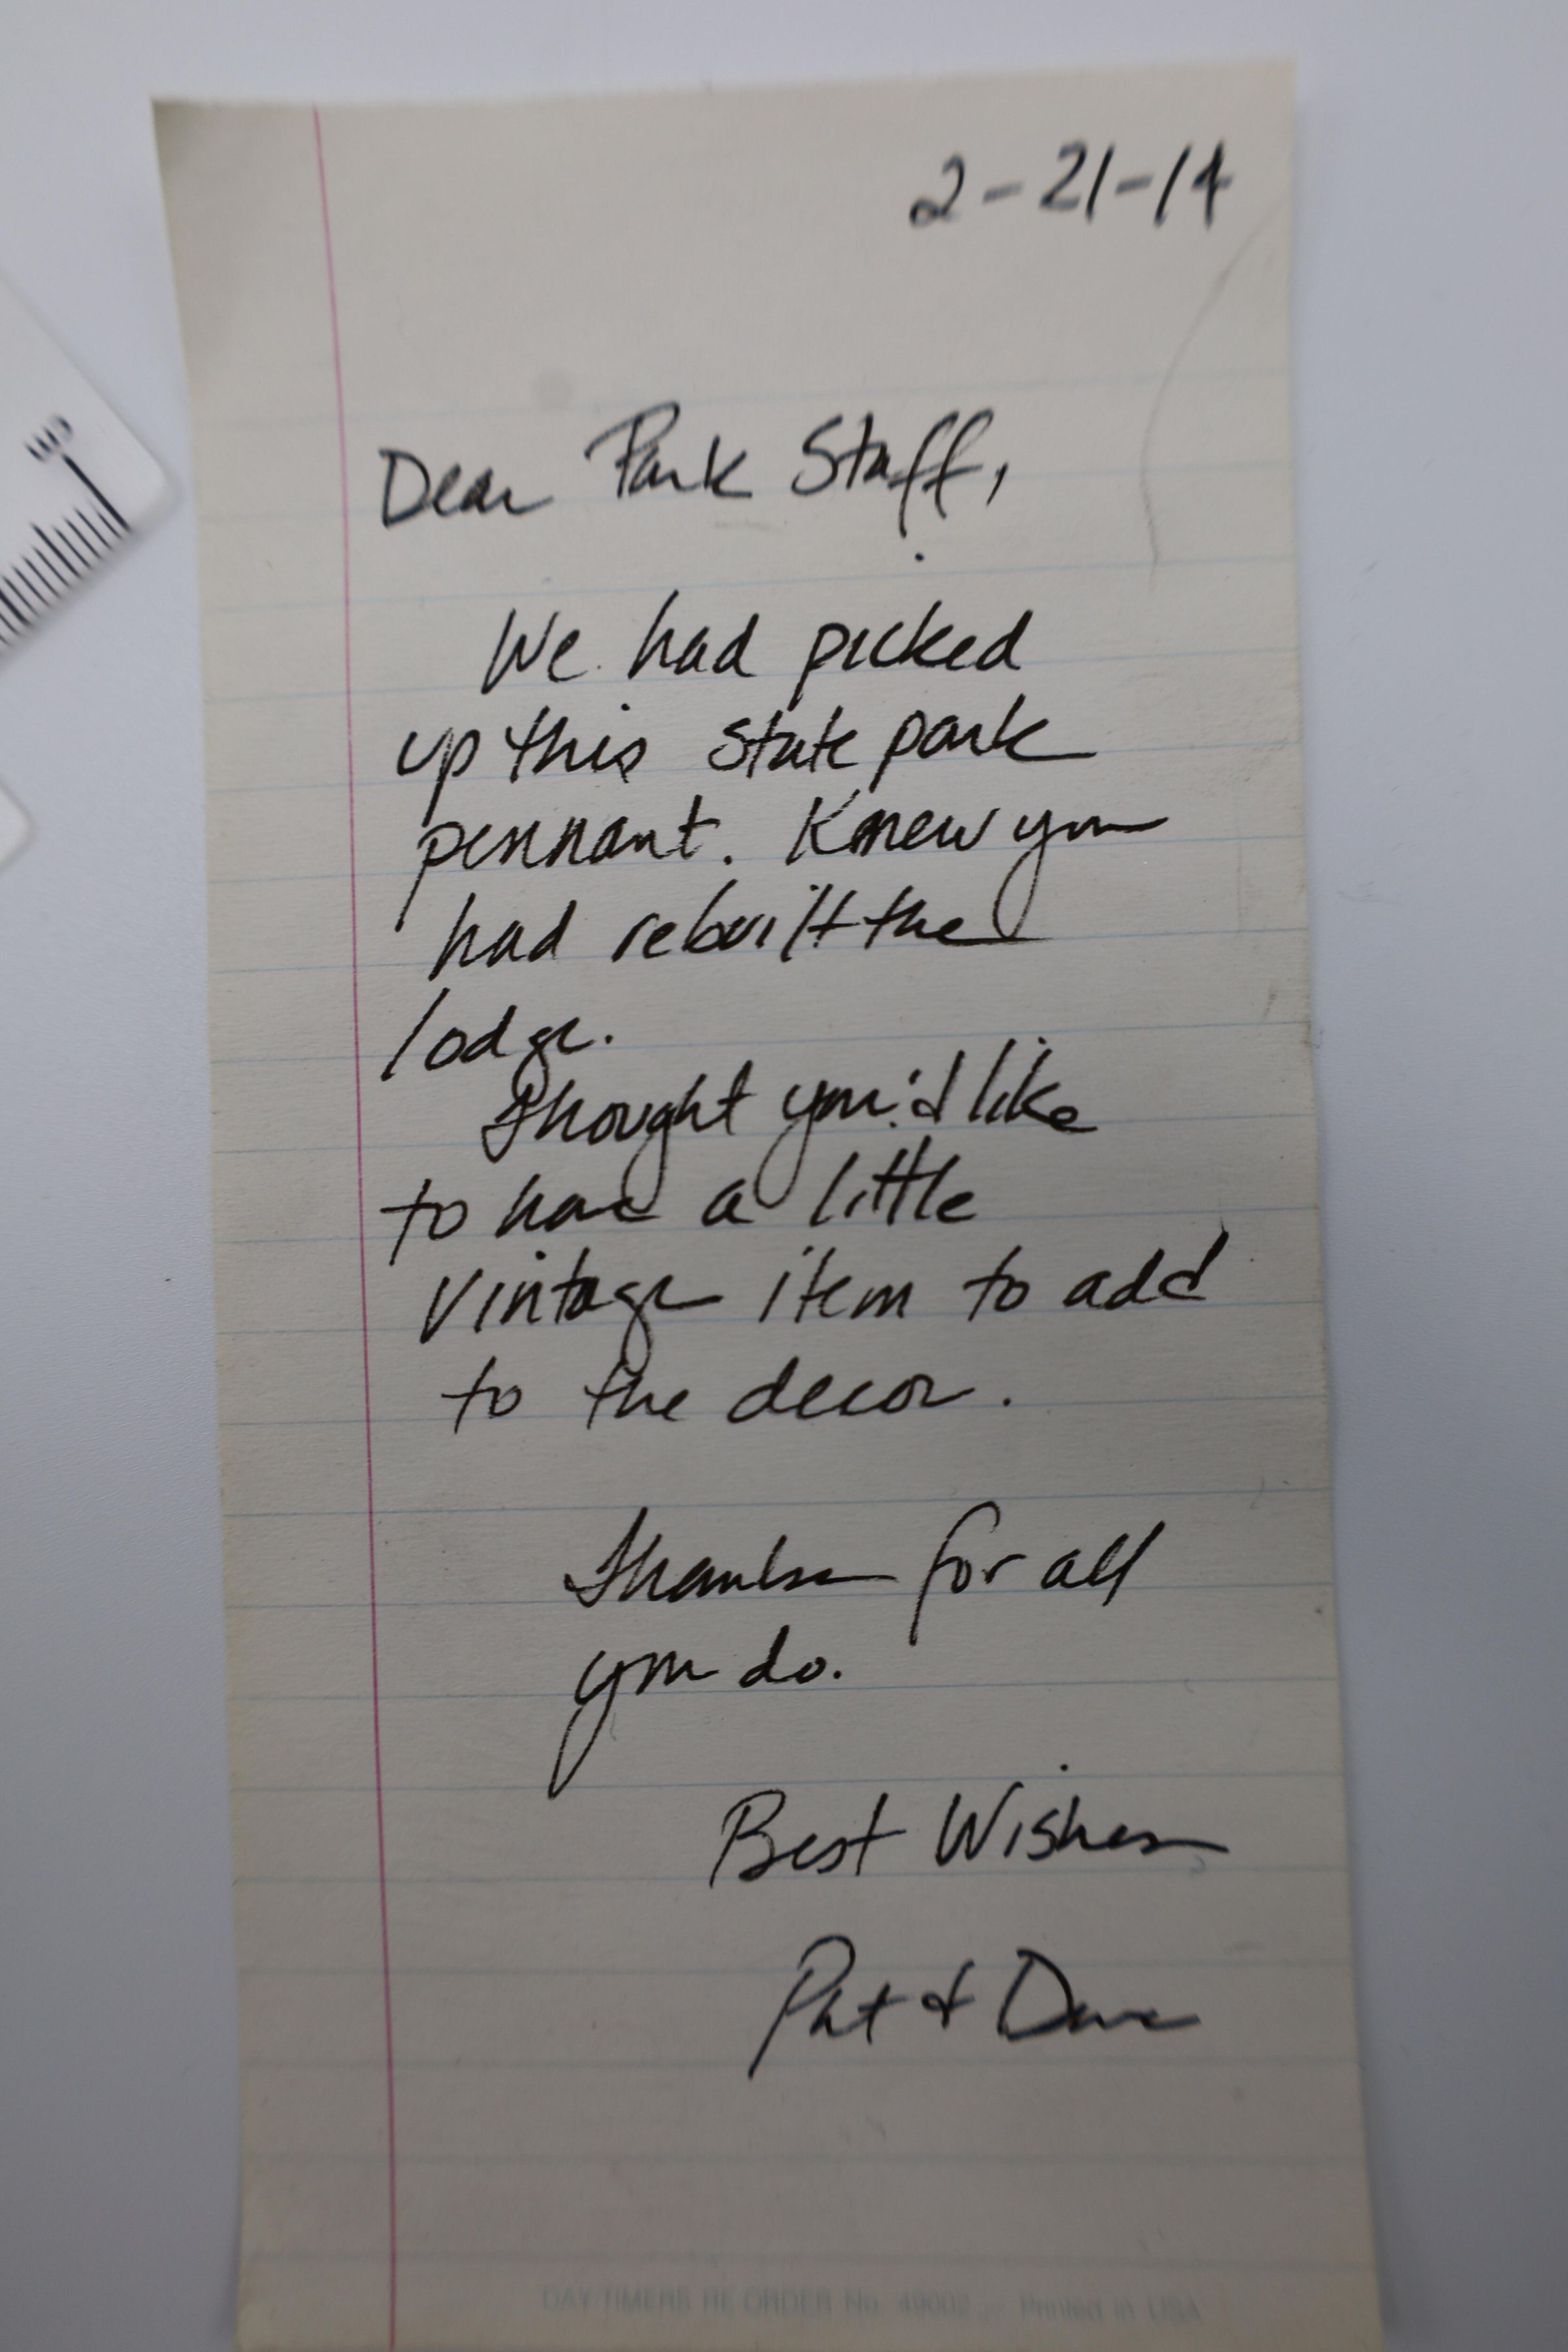 2-21-14
Dear Park Staff,
We had picked
up this state park
pennant. Knew you
had rebuilt the
lodge.
Thought you'd like
to have a little
vintage item to add
to the decor.
Thanks for all
you do.
Best Wishes
Pat & Dave
DAY-TIMERS RE-ORDER No. 49002 Printed in USA